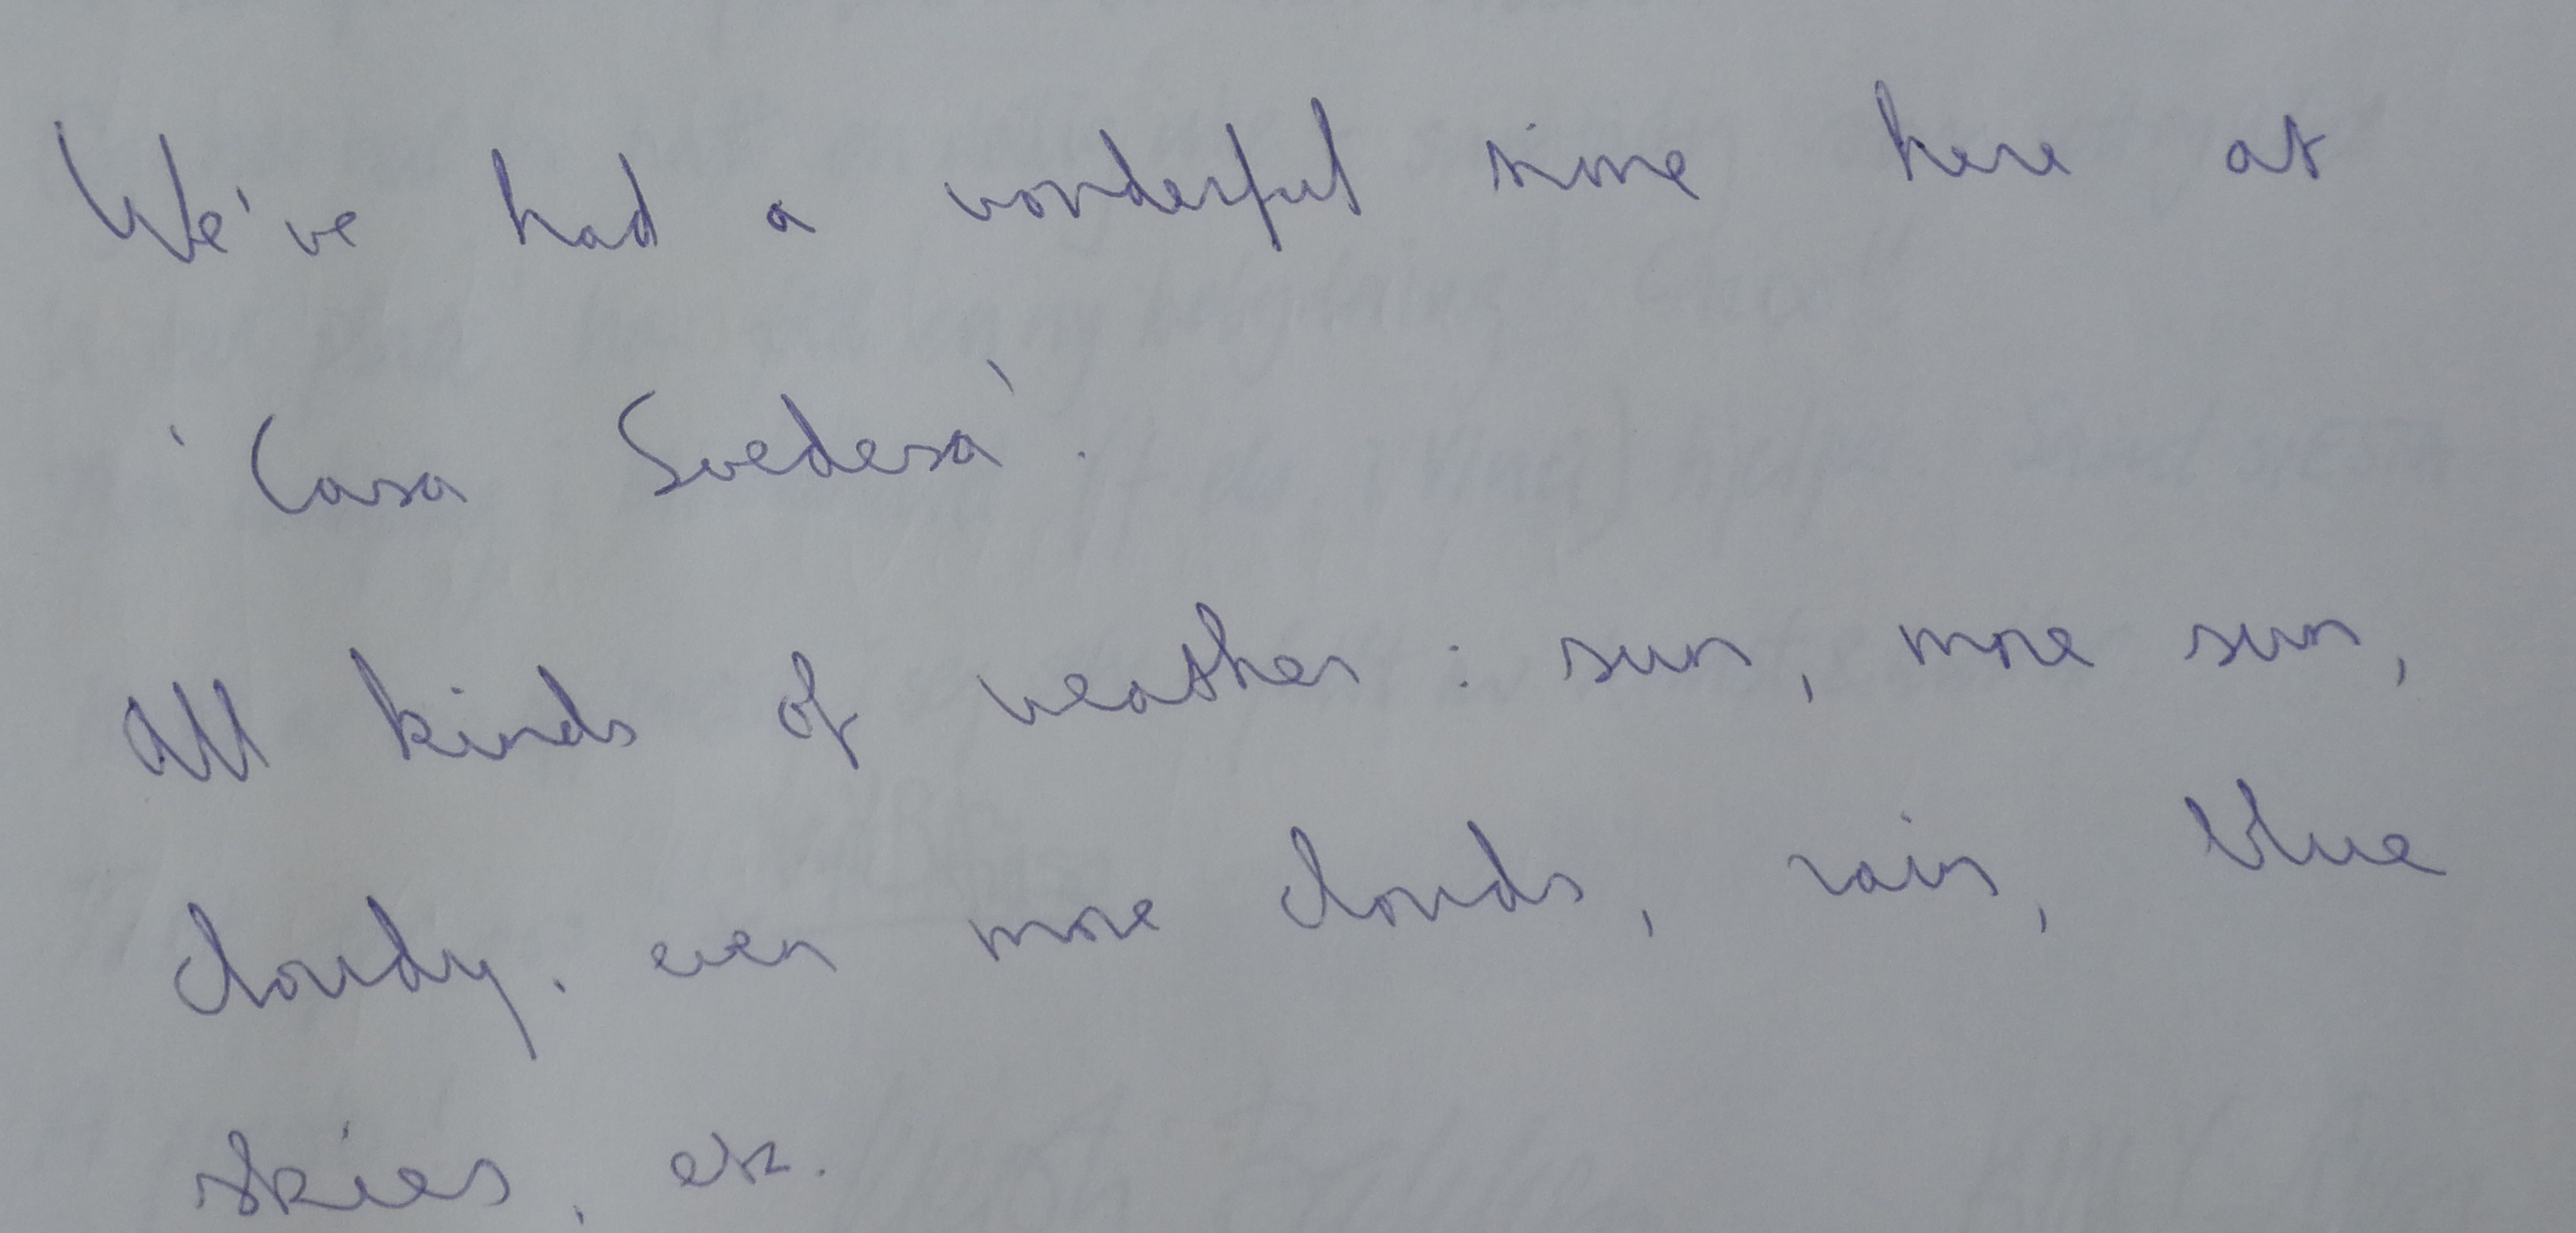 We've had a wonderful time here at
'Casa Svedesa'.
All kinds of weather: sun, more sun,
cloudy, even more clouds, rain, blue
skies, etc.